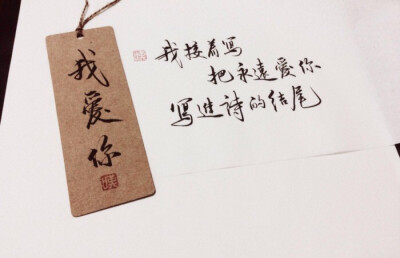 我爱你
我接着写
把永遠爱你
写进詩的结尾